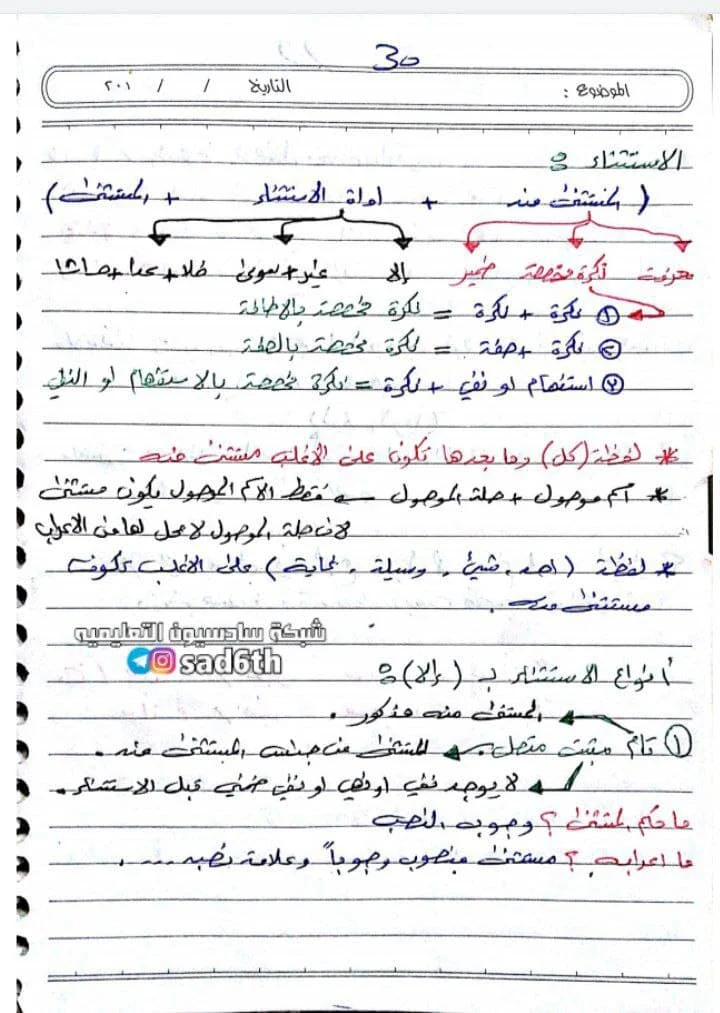 30
الموضوع : التاريخ / / ٢٠١
الاستثناء :
( المستثنى منه + اداة الاستثناء + المستثنى )
معرفة نكرة مخصصة ضمير إلا غير + سوى خلا + عدا + حاشا
① نكرة + نكرة = نكرة مخصصة بالاضافة
② نكرة + صفة = نكرة مخصصة بالصفة
③ استفهام او نفي + نكرة = نكرة مخصصة بالاستفهام او النفي
* لفظة (كل) وما بعدها تكون على الاغلب مستثنى منه
* اسم موصول + صلة الموصول فقط الاسم الموصول يكون مستثنى
لان صلة الموصول لا محل لها من الاعراب
* لفظة ( احد ، شيئ ، وسيلة ، غاية ) على الاغلب تكون
مستثنى منه .
شبكة سادسيون التعليميه
sad6th
أنواع الاستثناء بـ ( إلا ) :
المستثنى منه مذكور .
① تام مثبت متصل . المستثنى من جنس المستثنى منه .
لا يوجد نفي او نهي او نفي ضمني قبل الاستثناء .
ما حكم المستثنى ؟ وجوب النصب
ما اعرابه ؟ مستثنى منصوب وجوباً وعلامة نصبه ... .